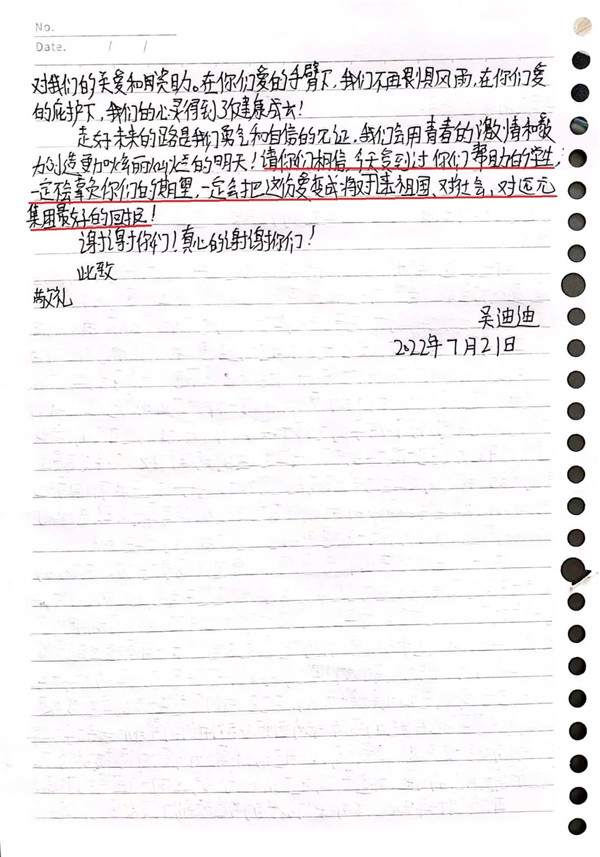 No.
Date. / /
对我们的关爱和资助。在你们爱的手臂下,我们不再畏惧风雨,在你们爱
的庇护下,我们的心灵得到了健康成长!
走好未来的路是我们勇气和自信的见证,我们会用青春的激情和努
力创造更加绚丽灿烂的明天!请你们相信,每个受到过你们帮助的学生,
一定不会辜负你们的期望,一定会把这份爱变成将来对祖国、对社会、对
集团最好的回报!
谢谢你们!真心的谢谢你们!
此致
敬礼
吴迪迪
2022年7月21日